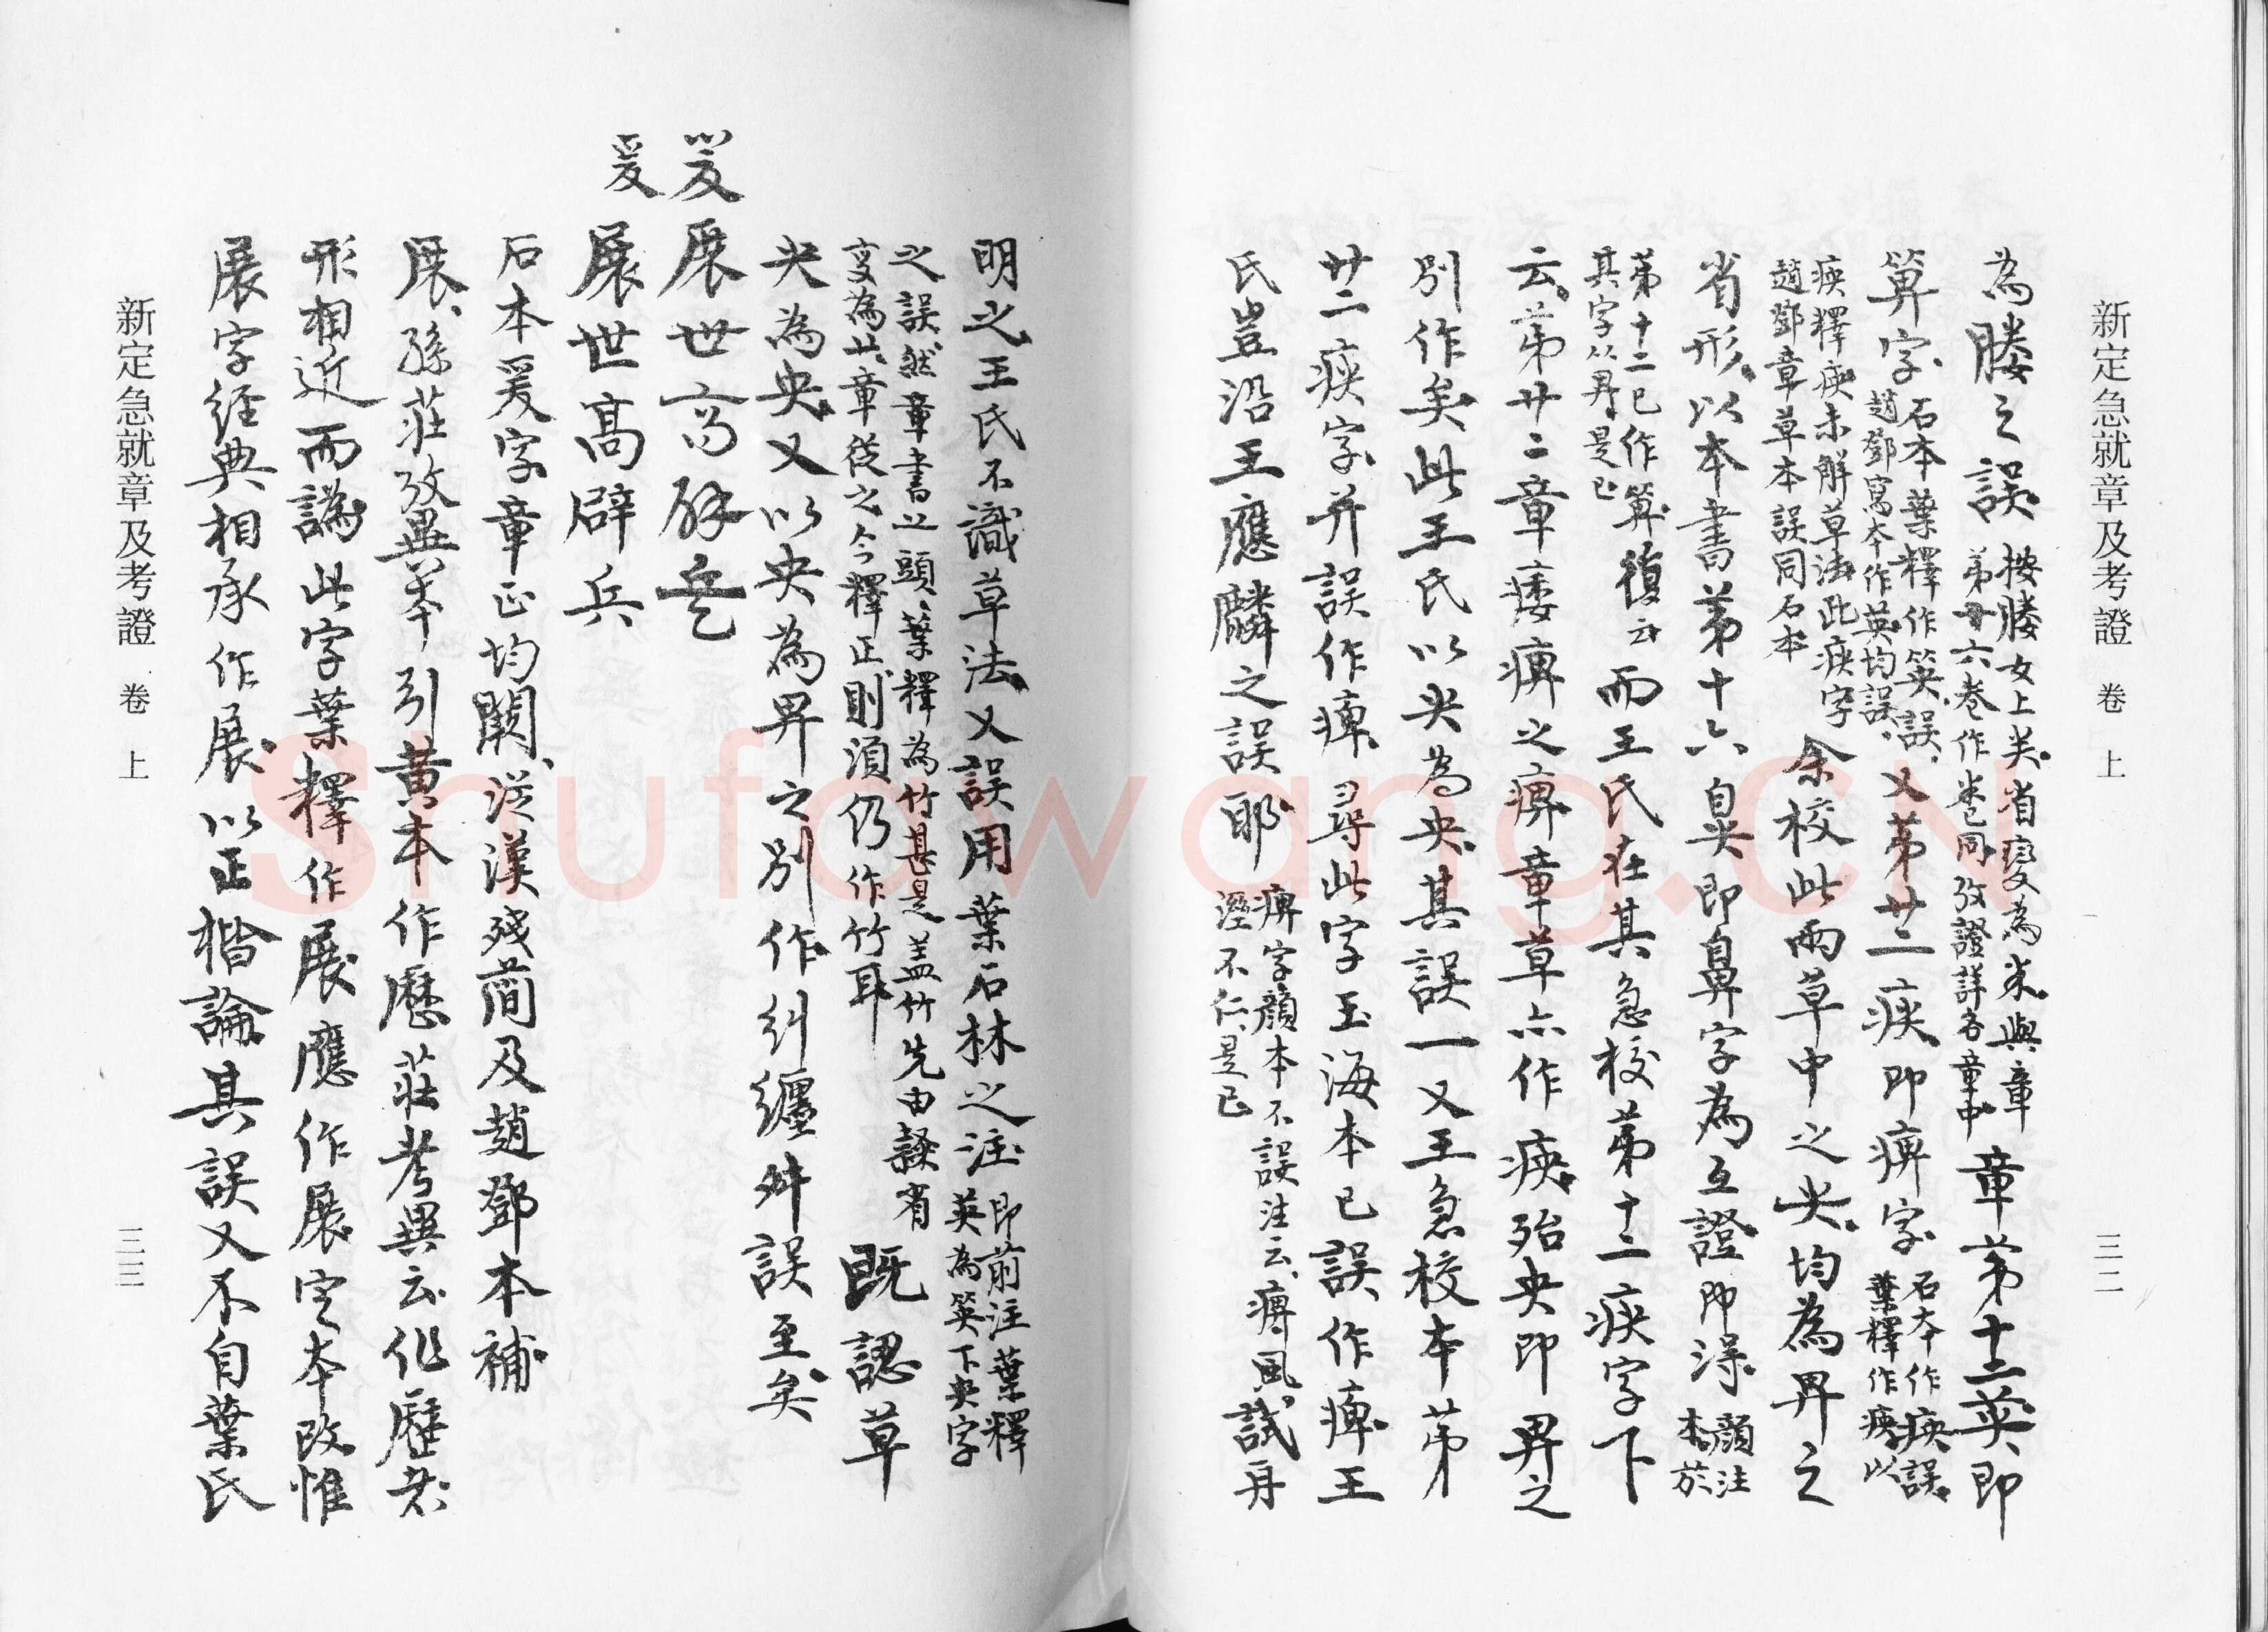 新定急就章及考證 卷上 三二
為媵之誤 按媵女上关省變為米與章
第廿六卷作米已同攷證詳各章中 章第十二英即
算字 石本葉釋作英誤
趙鄧寫本作英均誤 又第廿二㾄即痹字 石本作㾄誤
葉釋作㾄以
㾄釋㾄未解草法此㾄字
趙鄧章草本誤同石本 余校此兩草中之央均為畀之
省形以本書第十六臭即鼻字為互證即渜 顏注
本於
第十二已作算
其字从畀是已 復云而王氏在其急校第十二㾄字下
云第廿二章痿痹之痹章草亦作㾄殆央即畀之
別作矣此王氏以央為央其誤一又王急校本第
廿二㾄字并誤作痺尋此字玉海本已誤作痺王
氏豈沿王應麟之誤耶 痹字顏本不誤注云痹風
溼不仁是已 試再
明之王氏不識草法又誤用葉石林之注 即前注葉釋
英為英下央字
之誤然章書亠頭葉釋為竹甚是蓋竹先由隸省
變為廿章從之今釋正則須仍作竹耳 既認草
央為央又以央為畀之別作糾纏舛誤至矣
爰展世高辟兵
爰展世高辟兵
石本爰字章正均闕從漢殘簡及趙鄧本補
展孫莊攷異本引黃本作歷莊考異云作歷者
形相近而譌此字葉釋作展應作展定本改惟
展字經典相承作展以正楷論其誤又不自葉氏
新定急就章及考證 卷上 三三
Shufawang.CN